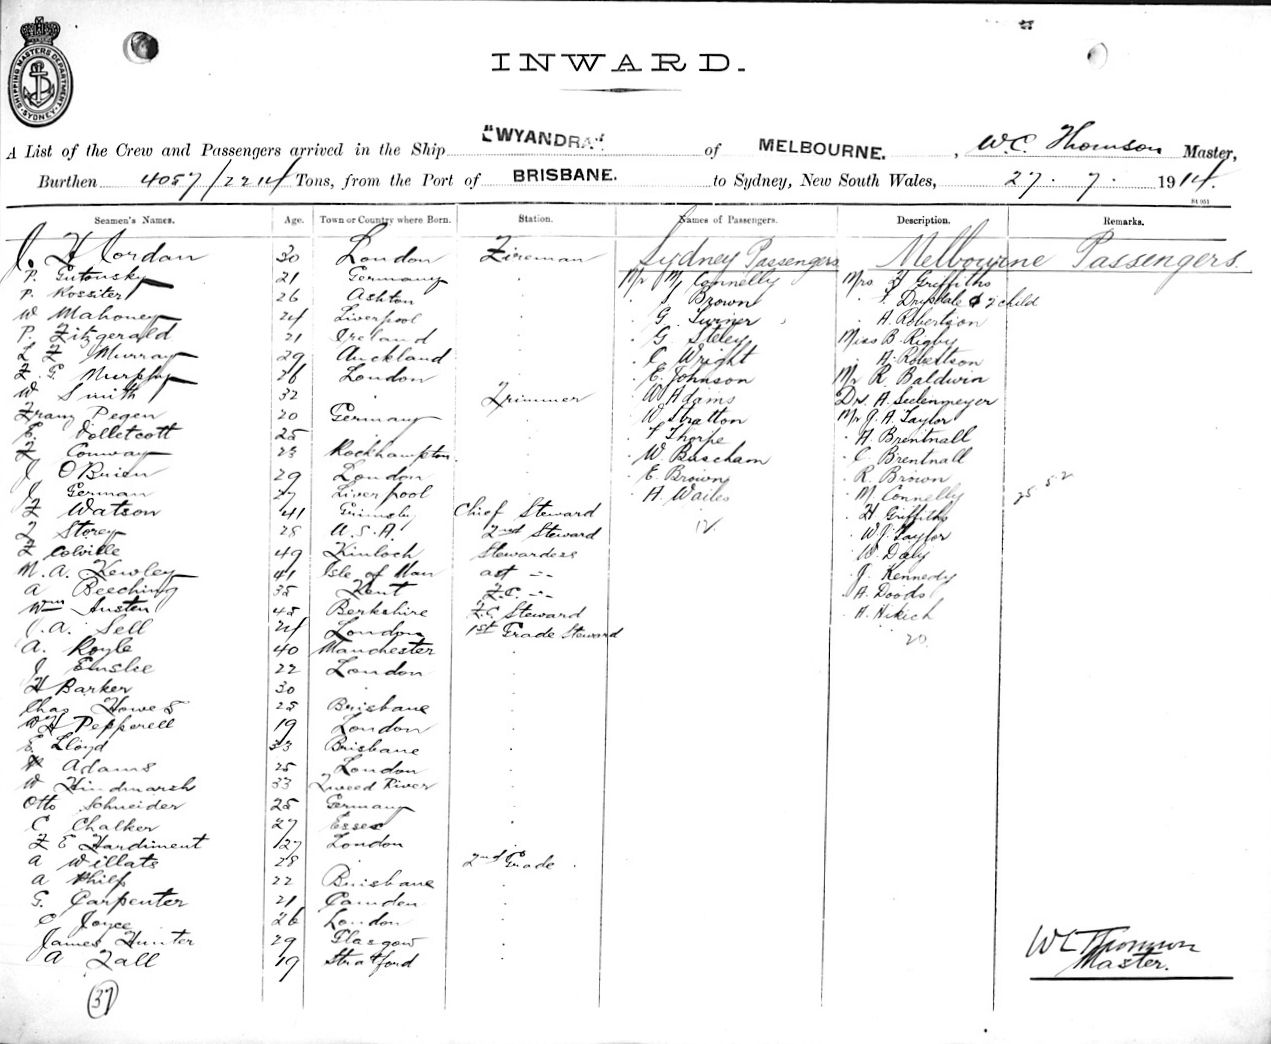 SHIPPING MASTERS DEPARTMENT
SYDNEY
INWARD.
A List of the Crew and Passengers arrived in the Ship "WYANDRA" of MELBOURNE. , W.C. Thomson Master,
Burthen 4057/2214 Tons, from the Port of BRISBANE. to Sydney, New South Wales, 27. 7. 1914.
Seamen's Names. Age. Town or Country where Born. Station. Names of Passengers. Description. Remarks.
J. H Jordan 30 London Fireman Sydney Passengers Melbourne Passengers.
P. Gutousky 21 Germany Mr M Connelly Mrs H Griffiths
P. Rossiter 26 Ashton Brown Drysdale & 2 child
W Mahoney 24 Liverpool G. Turner A. Robertson
P. Fitzgerald 21 Ireland G. Steley Miss B. Rigby
F Murray 29 Auckland C Wright A. Robertson
F. G. Murphy 26 London E. Johnson Mr R. Baldwin
W Smith 32 Trimmer W Adams Drs. A. Seelenmeyer
Franz Pegen 20 Germany W Stratton Mr J. A. Taylor
E. 25 Thorpe A. Brentnall
F Conway 23 Rockhampton. W. Buscham C Brentnall
J O'Brien 29 London E. Brown R. Brown
J German 27 Liverpool A. Wailes M Connelly
F Watson 41 Grimsby Chief Steward H Griffiths
Storey 28 U.S.A. 2nd Steward 12 W J. Taylor
F Colville 49 Kinloch Stewardess W Daly
M. A. Kewley 41 Isle of Man asst -- J. Kennedy
A Beeching 35 Kent F.C. -- A. Doods
Wm Austen 45 Berkshire F.C. Steward A. Hikich
A. Sell 24 London 1st Grade Steward 20
A. Royle 40 Manchester
J Emslee 22 London
H Barker 30
Chas Howes 25 Brisbane
W H Pepperell 19 London
E Lloyd 33 Brisbane
Adams 25 London
W Hindmarsh 33 Tweed River
Otto Schneider 25 Germany
C Chalker 27 Essex
F E Hardiment 27 London
A Willats 28 2nd Grade
A Philp 22 Brisbane
G. Carpenter 21 Camden
C Joyce 26 London
James Hunter 29 Glasgow
A Tall 19 Stratford
WC Thomson
Master.
37